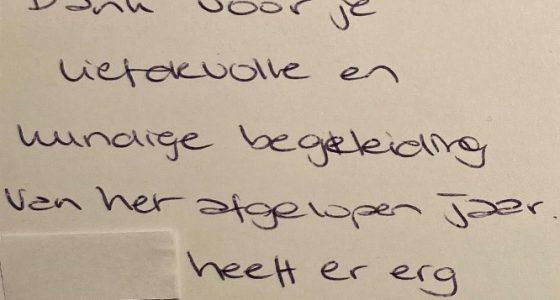 Dank voor je
liefdevolle en
kundige begeleiding
van het afgelopen jaar.
heeft er erg